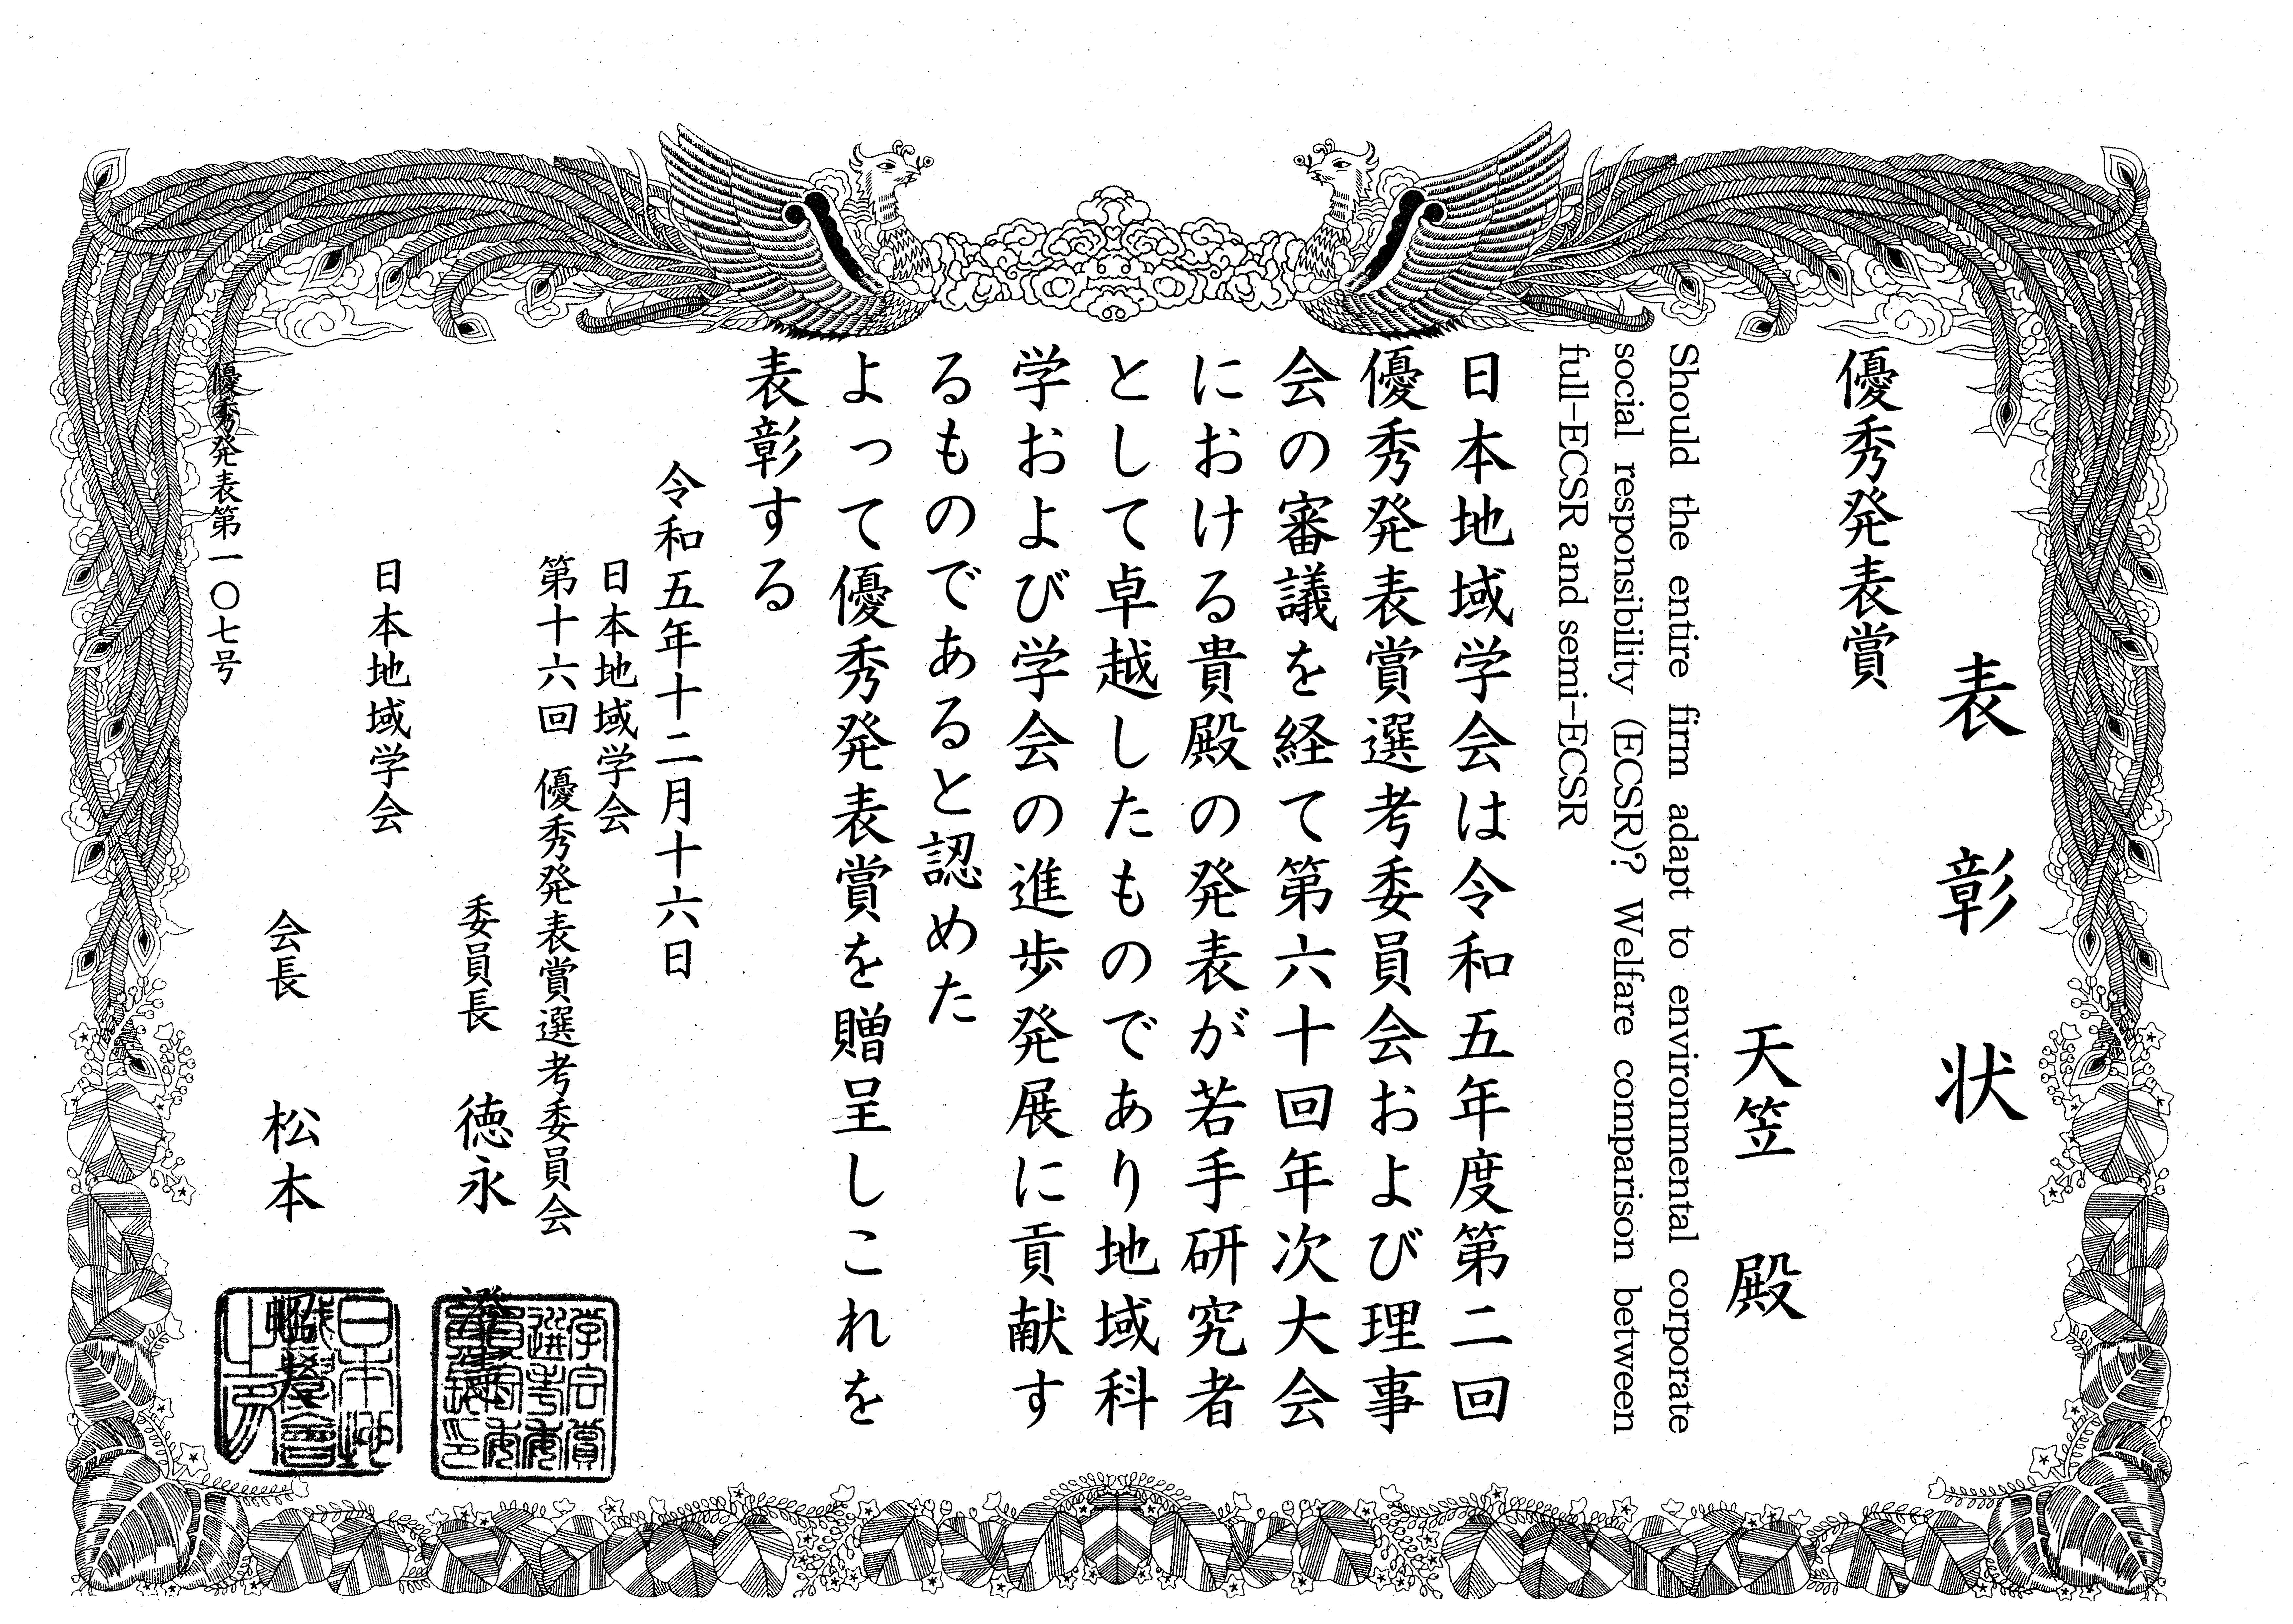 表彰状
優秀発表賞
天笠 殿
Should the entire firm adapt to environmental corporate
social responsibility (ECSR)? Welfare comparison between
full-ECSR and semi-ECSR
日本地域学会は令和五年度第二回
優秀発表賞選考委員会および理事
会の審議を経て第六十回年次大会
における貴殿の発表が若手研究者
として卓越したものであり地域科
学および学会の進歩発展に貢献す
るものであると認めた
よって優秀発表賞を贈呈しこれを
表彰する
令和五年十二月十六日
日本地域学会
第十六回 優秀発表賞選考委員会
委員長 徳永
日本地域学会
会長 松本
優秀発表第一〇七号